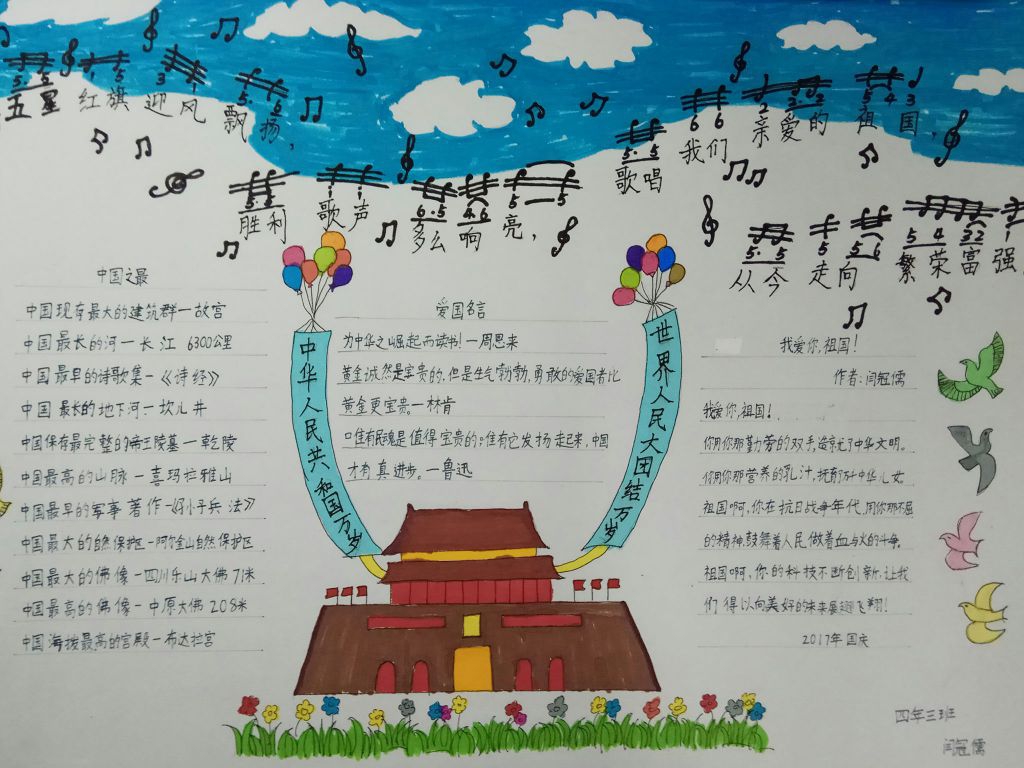 五星红旗迎风飘扬，
胜利歌声多么响亮，
歌唱我们亲爱的祖国，
从今走向繁荣富强
中国之最
中国现存最大的建筑群一故宫
中国最长的河一长江 6300公里
中国最早的诗歌集-《诗经》
中国最长的地下河一坎儿井
中国保存最完整的帝王陵墓一乾陵
中国最高的山脉-喜玛拉雅山
中国最早的军事著作-《孙子兵法》
中国最大的自然保护区-阿尔金山自然保护区
中国最大的佛像-四川乐山大佛71米
中国最高的佛像-中原大佛208米
中国海拨最高的宫殿一布达拉宫
中华人民共和国万岁
爱国名言
为中华之崛起而读书!一周恩来
黄金诚然是宝贵的,但是生气勃勃,勇敢的爱国者比
黄金更宝贵。一林肯
唯有民魂是值得宝贵的,唯有它发扬起来,中国
才有真进步。一鲁迅
世界人民大团结万岁
我爱你,祖国!
作者:闫冠儒
我爱你,祖国!
你用你那勤劳的双手造就了中华文明。
你用你那营养的乳汁,抚育了中华儿女
祖国啊,你在抗日战争年代,用你那不屈
的精神,鼓舞着人民做着血与火的斗争。
祖国啊,你的科技不断创新,让我
们得以向美好的未来展翅飞翔!
2017年国庆
四年三班
闫冠儒